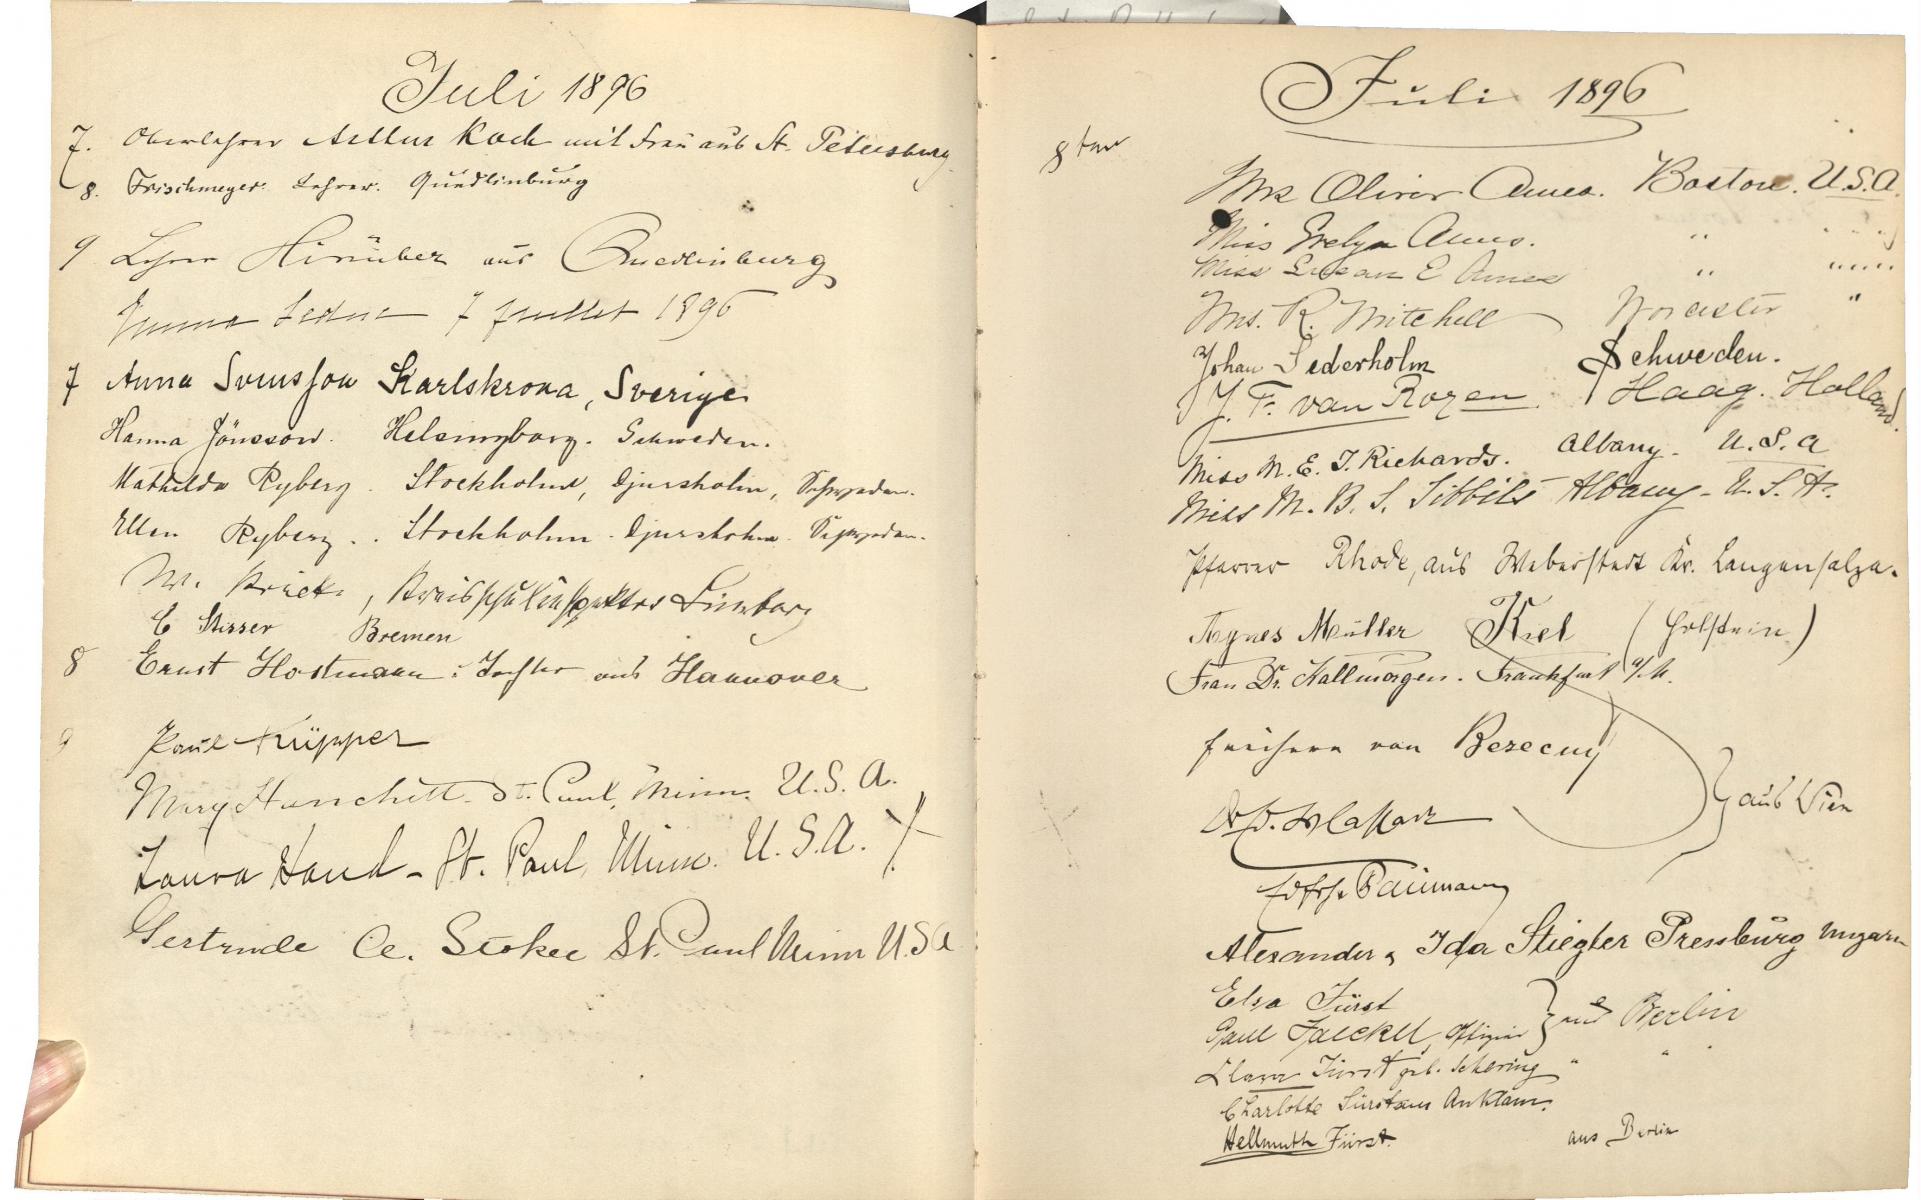 Juli 1896
7. Oberlehrer Arthur Koch mit Frau aus St. Petersburg
8. Frischmeyer. Lehrer. Quedlinburg
9 Lehrer Hirnüber aus Quedlinburg
Emma 7 juillet 1896
7 Anna Svensson Karlskrona, Sverige
Hanna Jönsson. Helsingborg. Schweden.
Mathilda Ryberg. Stockholm, Djursholm, Schweden.
Ellen Ryberg. Stockholm. Djursholm. Schweden.
W. Kreisschulinspektor Limburg
C Bremen
8 Ernst Hostmann u. Tochter aus Hannover
9 Paul Küpper
Mary Hanchett. St. Paul, Minn. U.S.A.
Laura Hand - St. Paul, Minn. U.S.A.
Gertrude C. St. Paul Minn U.S.A
Juli 1896
8ten
Mrs Oliver Ames. Boston. U.S.A.
Miss Evelyn Ames. " " " "
Miss Susan E Ames " " " "
Mrs. R. Mitchell Worcester "
Johan Sederholm Schweden.
J. F. van Rozen Haag. Holland.
Miss M. E. J. Richards. Albany. U.S.A
Miss M. B. S. Albany - U.S.A.
Pfarrer Rhode, aus Weberstedt Kr. Langensalza.
Agnes Müller Kiel (Holstein)
Frau Dr. Kallmorgen. Frankfurt a/M.
Freiherr von Bezecny
aus Wien
Baumann
Alexander u. Ida Stiegler Pressburg Ungarn
Elsa Fürst
Paul Jaeckel, Offizier aus Berlin
Clara Fürst geb. Schering " "
Charlotte Fürst aus Anklam.
Hellmuth Fürst. aus Berlin